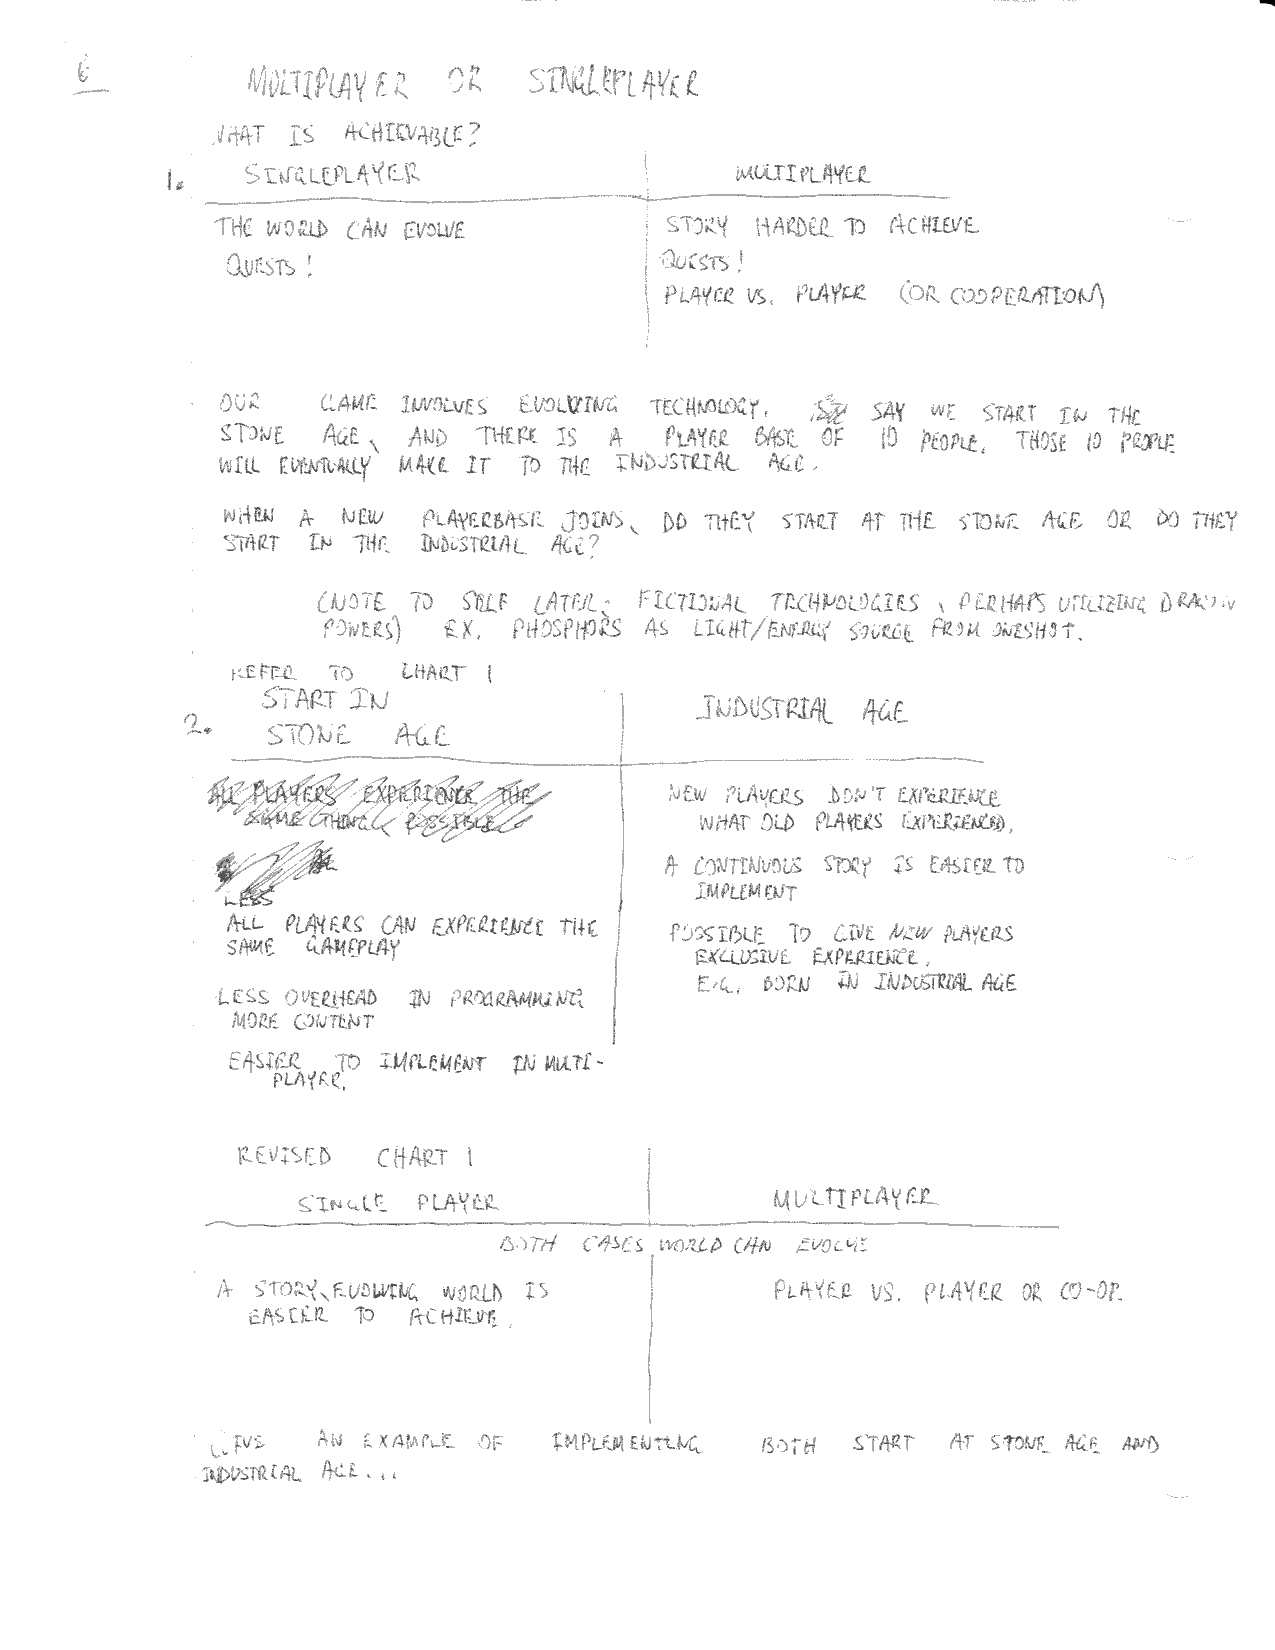 6
MULTIPLAYER OR SINGLEPLAYER
WHAT IS ACHIEVABLE?
1. SINGLEPLAYER
MULTIPLAYER
THE WORLD CAN EVOLVE
QUESTS!
STORY HARDER TO ACHIEVE
QUESTS!
PLAYER VS. PLAYER (OR COOPERATION)
OUR GAME INVOLVES EVOLVING TECHNOLOGY. SAY WE START IN THE
STONE AGE, AND THERE IS A PLAYER BASE OF 10 PEOPLE. THOSE 10 PEOPLE
WILL EVENTUALLY MAKE IT TO THE INDUSTRIAL AGE.
WHEN A NEW PLAYERBASE JOINS, DO THEY START AT THE STONE AGE OR DO THEY
START IN THE INDUSTRIAL AGE?
(NOTE TO SELF LATER: FICTIONAL TECHNOLOGIES, PERHAPS UTILIZING
POWERS) EX. PHOSPHORS AS LIGHT/ENERGY SOURCE FROM ONESHOT.
REFER TO CHART 1
2. START IN
STONE AGE
INDUSTRIAL AGE
ALL PLAYERS EXPERIENCE THE
SAME THING POSSIBLE
LESS
ALL PLAYERS CAN EXPERIENCE THE
SAME GAMEPLAY
LESS OVERHEAD IN PROGRAMMING
MORE CONTENT
EASIER TO IMPLEMENT IN MULTI-
PLAYER.
NEW PLAYERS DON'T EXPERIENCE
WHAT OLD PLAYERS EXPERIENCED.
A CONTINUOUS STORY IS EASIER TO
IMPLEMENT
POSSIBLE TO GIVE NEW PLAYERS
EXCLUSIVE EXPERIENCE.
E.G. BORN IN INDUSTRIAL AGE
REVISED CHART 1
SINGLE PLAYER
MULTIPLAYER
BOTH CASES WORLD CAN EVOLVE
A STORY, EVOLVING WORLD IS
EASIER TO ACHIEVE.
PLAYER VS. PLAYER OR CO-OP.
GIVE AN EXAMPLE OF IMPLEMENTING BOTH START AT STONE AGE AND
INDUSTRIAL AGE...